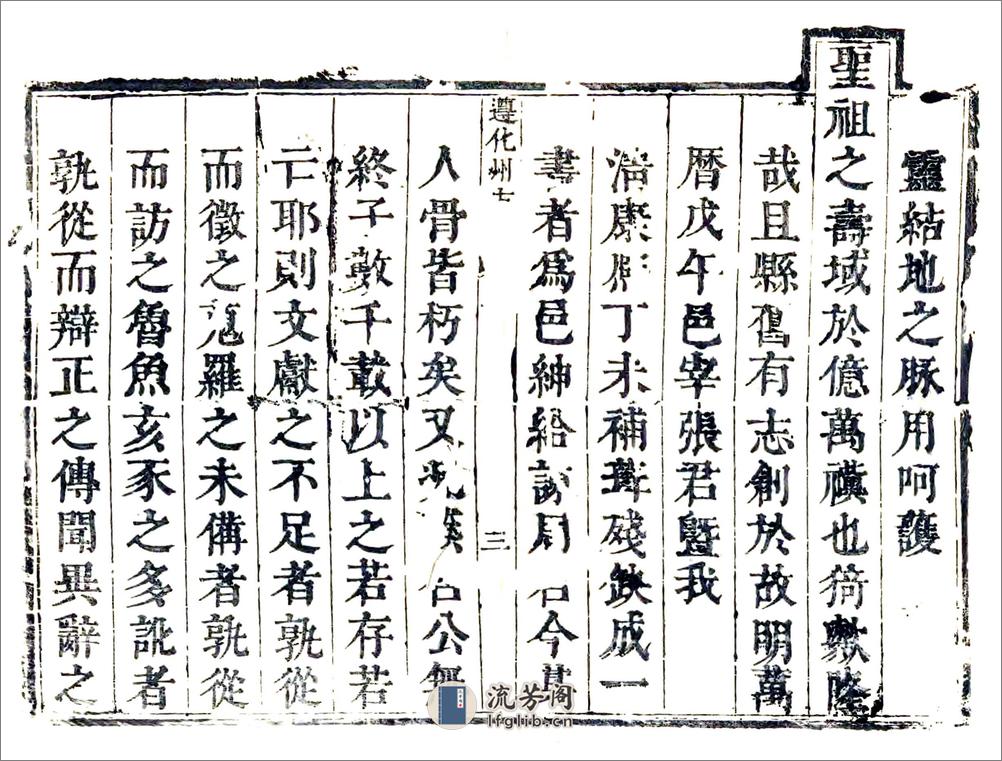 靈結地之脉用呵護
聖祖之壽域於億萬禩也猗歟隆
哉且縣舊有志創於故明萬
曆戊午邑宰張君曁我
清康熙丁未補葺殘缺成一
書者爲邑紳給諫周 今其
遵化州志
三
人骨皆朽矣又況 公無
終子數千載以上之若存若
亡耶則文獻之不足者孰從
而徵之 羅之未備者孰從
而訪之魯魚亥豕之多訛者
孰從而辯正之傳聞異辭之
流芳阁
lfglib.cn